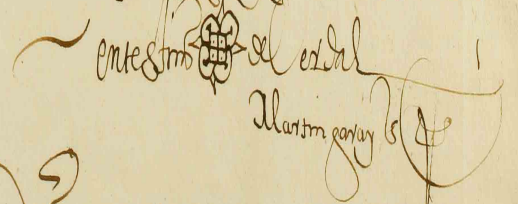 en testimo de verdad
Martin garay